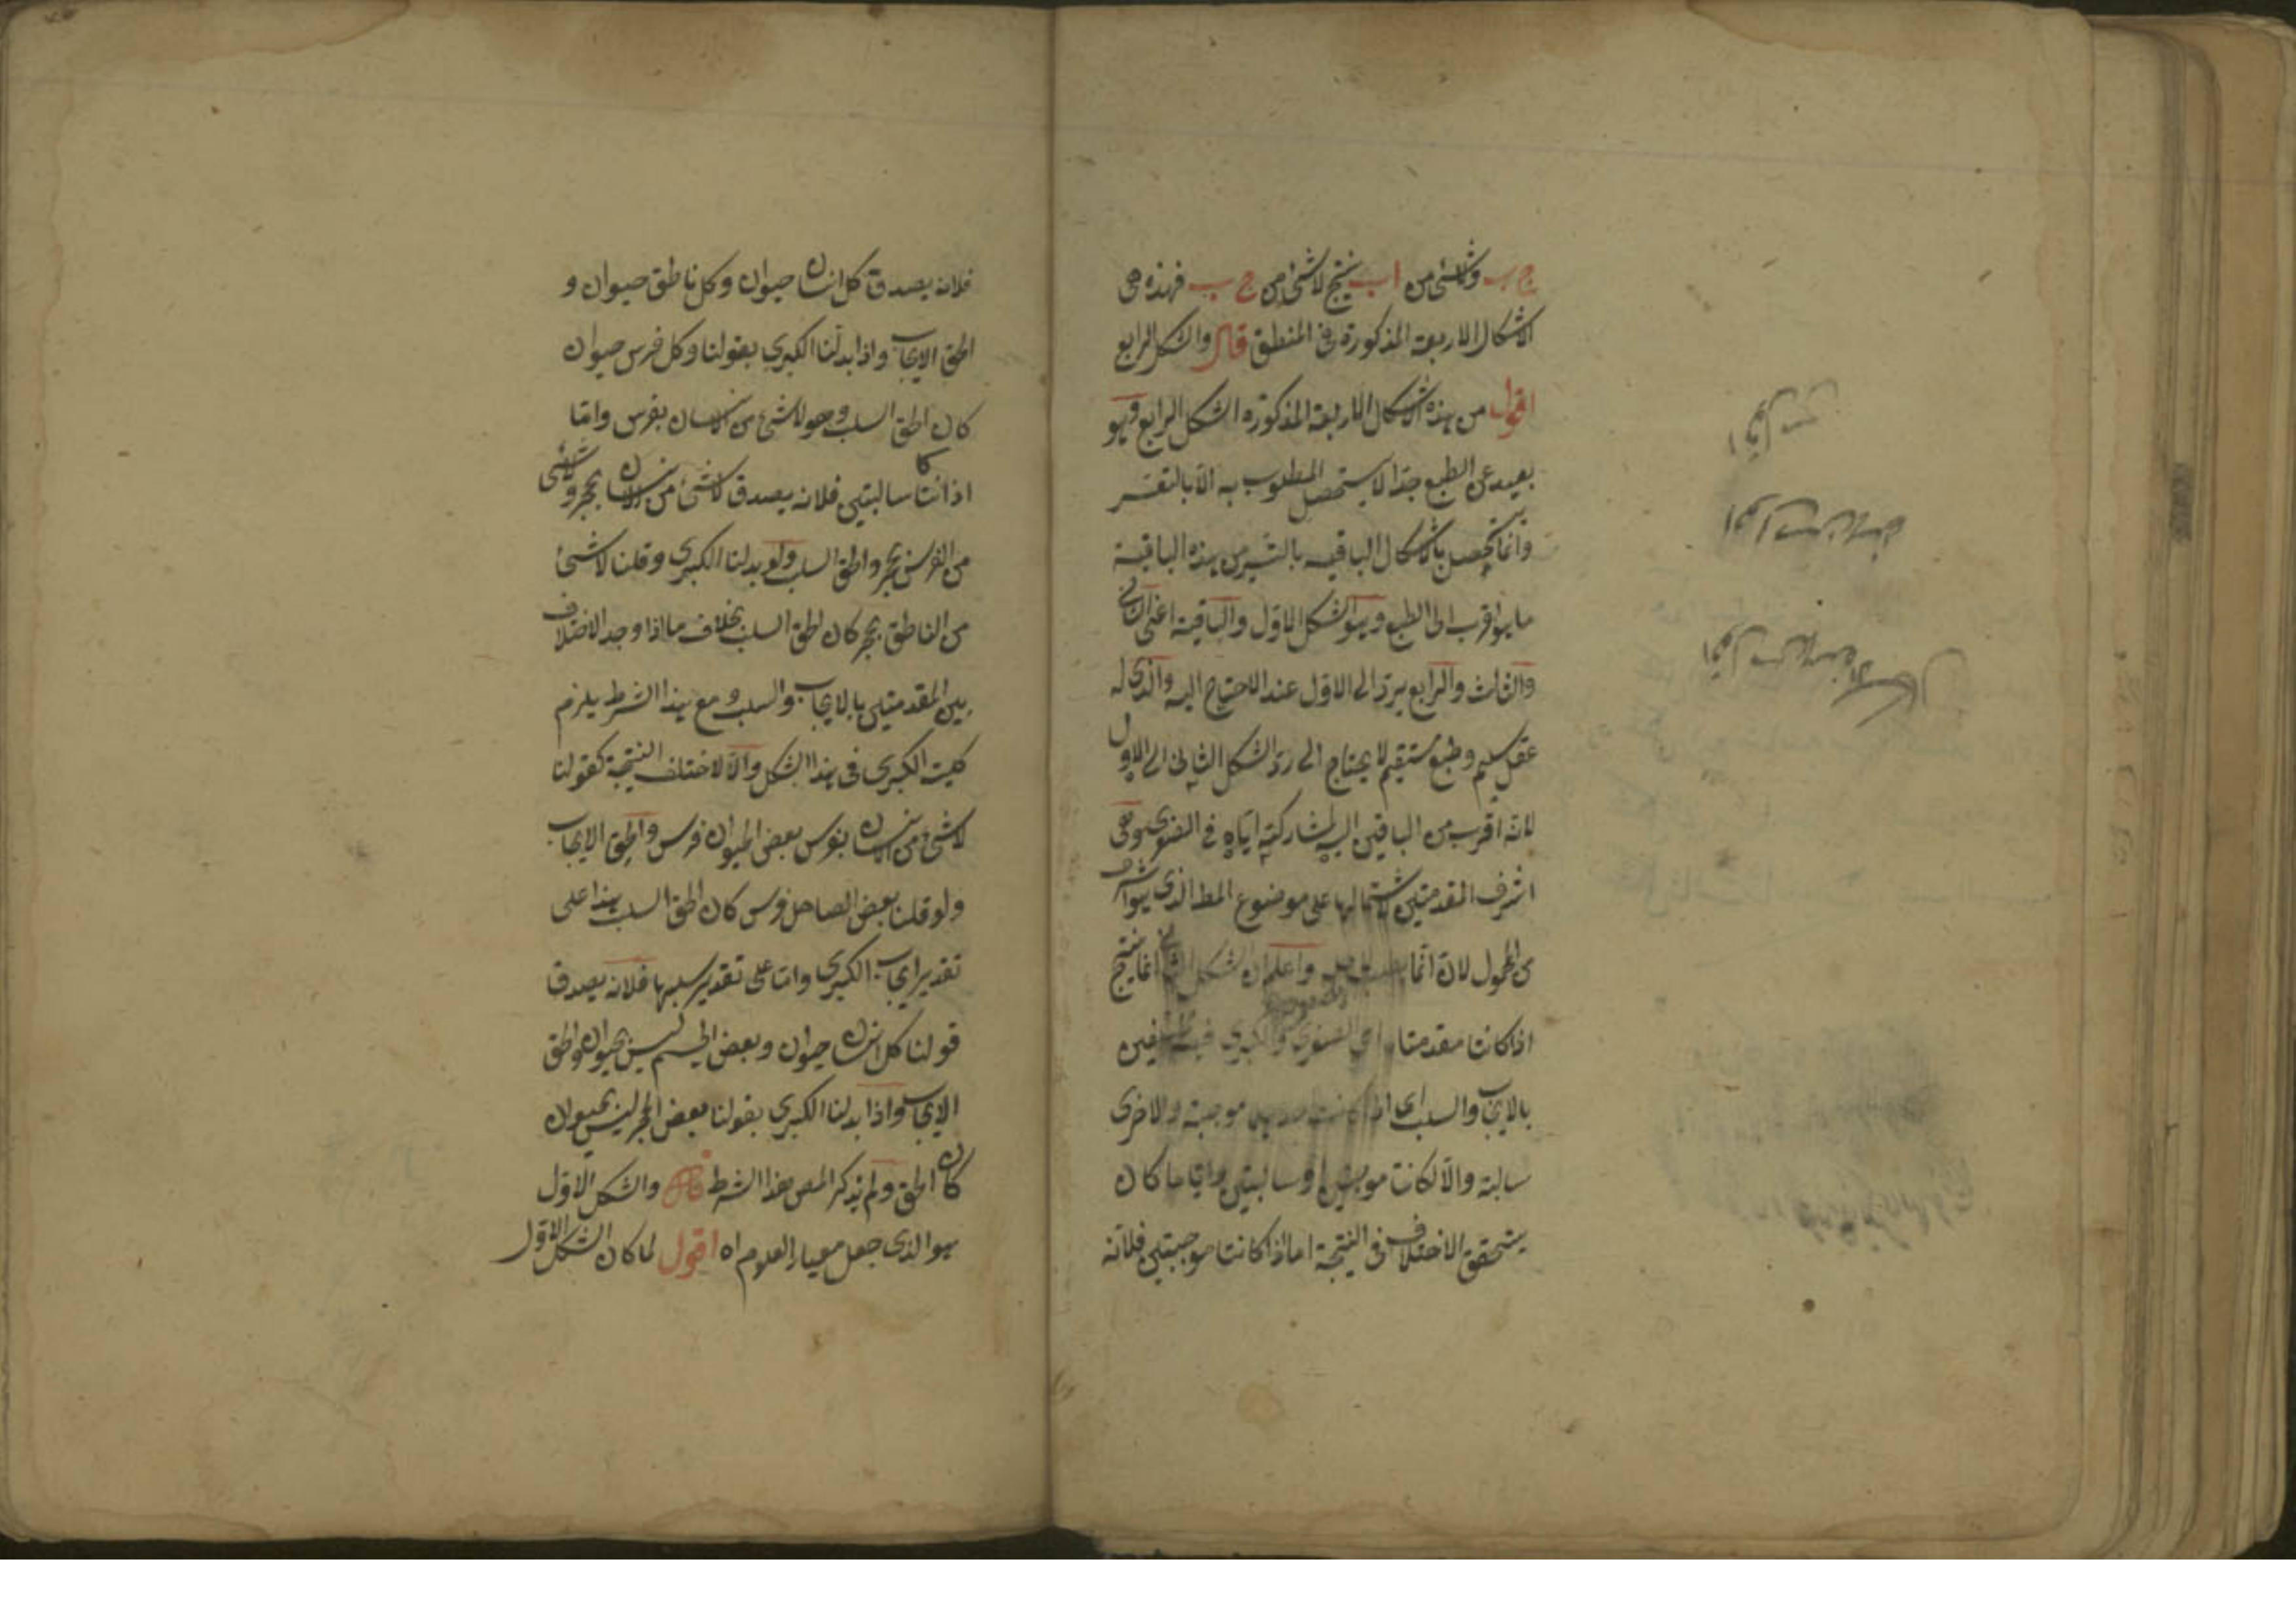 ج ب ولا شئ من ا ب ينتج لا شئ من ج ب فهذه هى
الاشكال الاربعة المذكورة فى المنطق قال والشكل الرابع
اقول من هذه الاشكال الاربعة المذكورة الشكل الرابع وهو
بعيد عن الطبع جدا لا يستحصل المطلوب به الا بالتعسر
وانما يحصل بالاشكال الباقيه بالتيسر من هذه الباقية
ما هو اقرب الى الطبع وهو الشكل الاول والباقية اعنى الثانى
والثالث والرابع يرد الى الاول عند الاحتياج اليه والذى له
عقل سليم وطبع مستقيم لا يحتاج الى رد الشكل الثانى الى الاول
لانه اقرب من الباقين اليه لمشاركته اياه فى الصغرى وهى
اشرف المقدمتين لاشتمالها على موضوع المط الذى هو اشرف
من المحمول لانه انما واعلم ان الشكل الثانى انما ينتج
اذا كانت مقدمتاه اى الصغرى والكبرى مختلفتين
بالايجاب والسلب اى اذا كانت احديهما موجبة والاخرى
سالبة والا لكانتا موجبتين او سالبتين وايا ما كان
يتحقق الاختلاف فى النتيجة اما اذا كانتا موجبتين فلانه
فلانه يصدق كل انسان حيوان وكل ناطق حيوان و
الحق الايجاب واذا بدلنا الكبرى بقولنا وكل فرس حيوان
كان الحق السلب وهو لا شئ من الانسان بفرس واما
اذا كانتا سالبتين فلانه يصدق لا شئ من الانسان بحجر ولا شئ
من الفرس بحجر والحق السلب ولو بدلنا الكبرى وقلنا لا شئ
من الناطق بحجر كان الحق السلب بخلاف ما اذا وجد الاختلاف
بين المقدمتين بالايجاب والسلب ومع هذا الشرط يلزم
كلية الكبرى فى هذا الشكل والا لاختلف النتيجة كقولنا
لا شئ من الانسان بفرس بعض الحيوان فرس والحق الايجاب
ولو قلنا بعض الصاهل فرس كان الحق السلب هذا على
تقدير ايجاب الكبرى واما على تقدير سلبها فلانه يصدق
قولنا كل انسان حيوان وبعض الجسم ليس بحيوان والحق
الايجاب واذا بدلنا الكبرى بقولنا بعض الحجر ليس بحيوان
كان الحق ولم يذكر المص هذا الشرط قال والشكل الاول
هو الذى جعل معيار العلوم اه اقول لما كان الشكل الاول